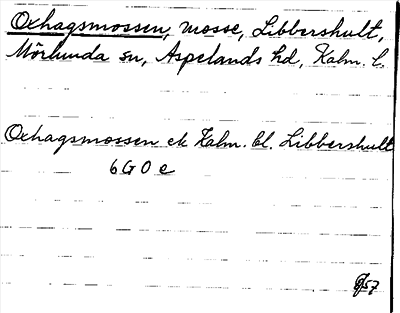 Oxhagsmossen, mosse, Libbershult,
Mörlunda sn, Aspelands hd, Kalm. l.
Oxhagsmossen ek Kalm. bl. Libbershult
6 G 0 e